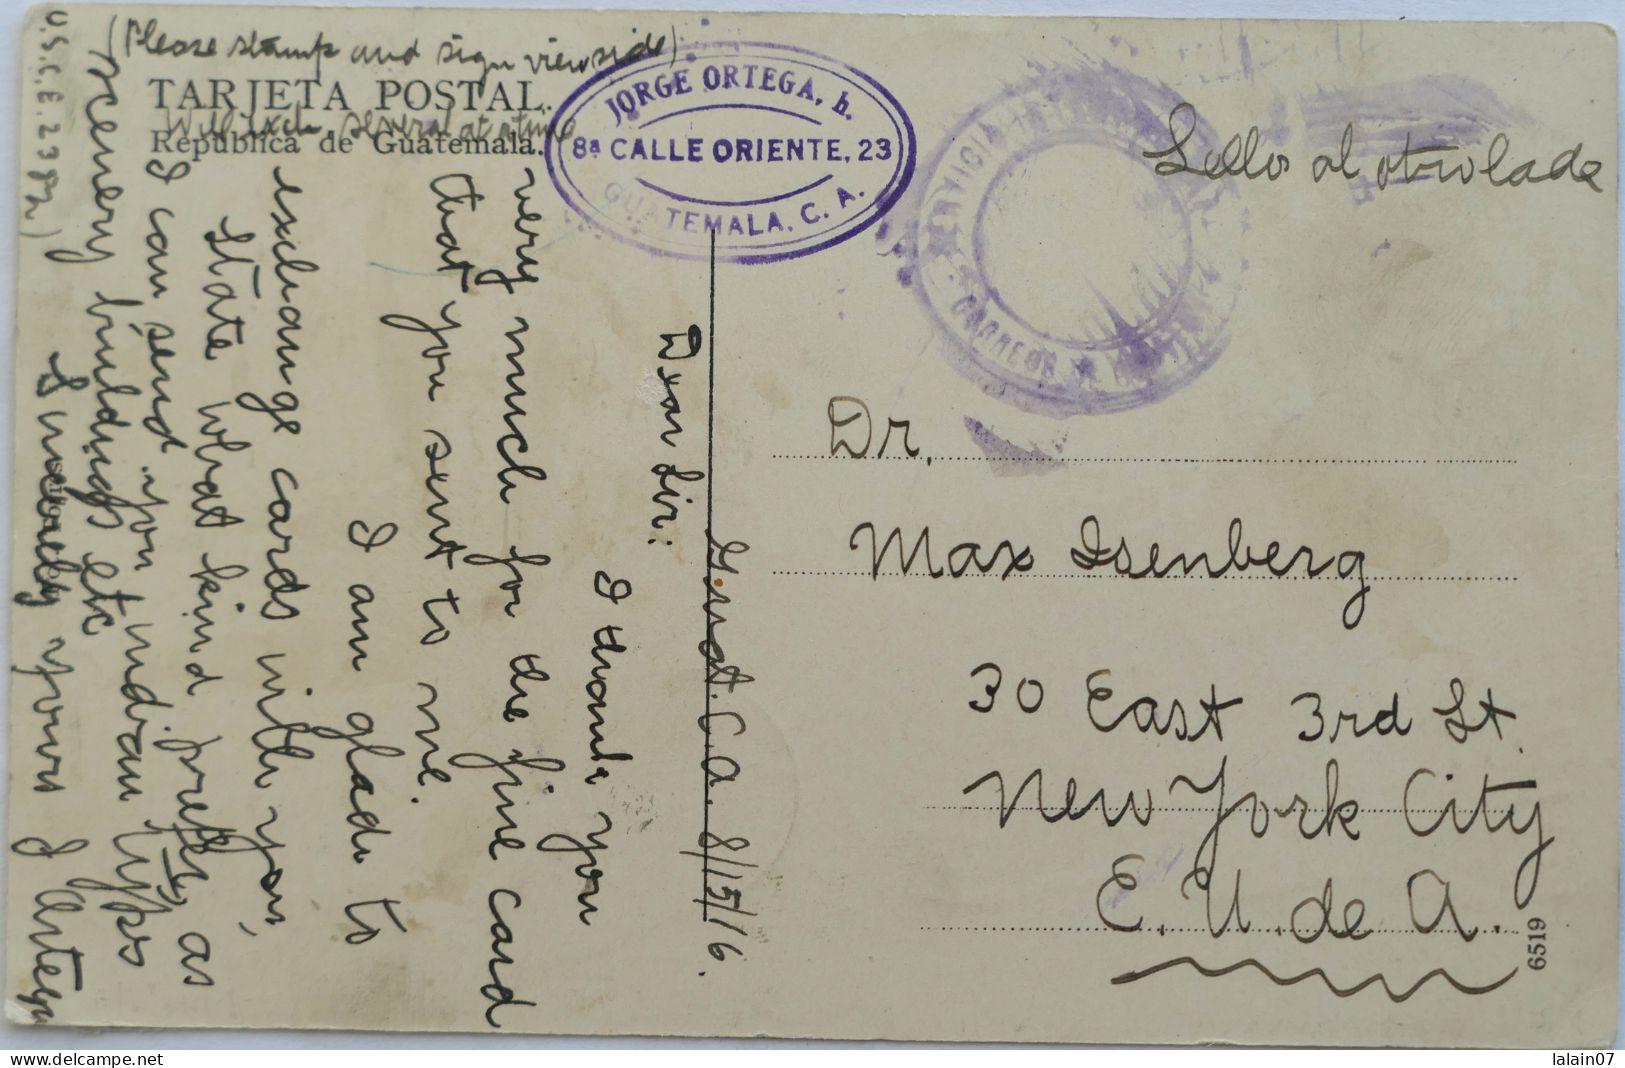 (Please stamp and sign view side)
TARJETA POSTAL.
Will exch. several at a time
República de Guatemala.
JORGE ORTEGA, h.
8ª CALLE ORIENTE, 23
GUATEMALA, C. A.
SERVICIO
CORREOS DE
Sello al otro lado
Guat. C. A. 8/15/16.
Dear Sir:
I thank you
very much for the fine card
that you sent to me.
I am glad to
exchange cards with you,
State what kind prefer, as
I can send you indian types
Scenery buildings etc
Sincerely yours J Ortega
U.S.C.E. 2382)
Dr.
Max Isenberg
30 East 3rd St.
New York City
E. U. de A.
6519
lalain07